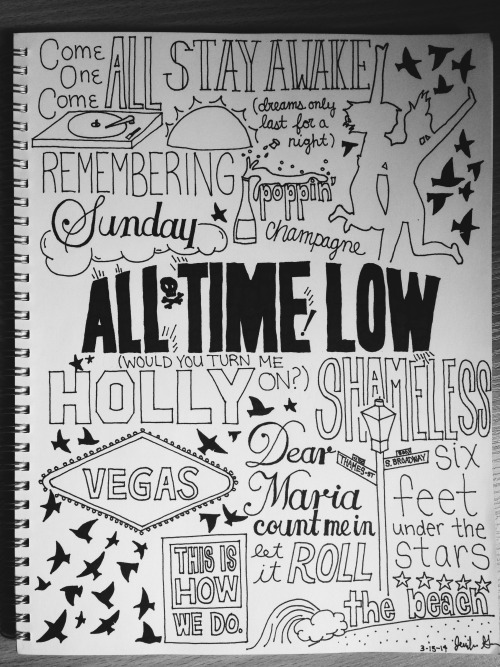 Come
One
Come ALL
STAY AWAKE
(dreams only
last for a
night)
REMEMBERING
Sunday
poppin'
champagne
ALL TIME LOW!
(WOULD YOU TURN ME
ON?)
HOLLY
SHAMELESS
VEGAS
Dear
Maria
count me in
THAMES ST
S. BROADWAY
six
feet
under the
stars
THIS IS
HOW
WE DO.
let
it ROLL
the beach
3-15-14